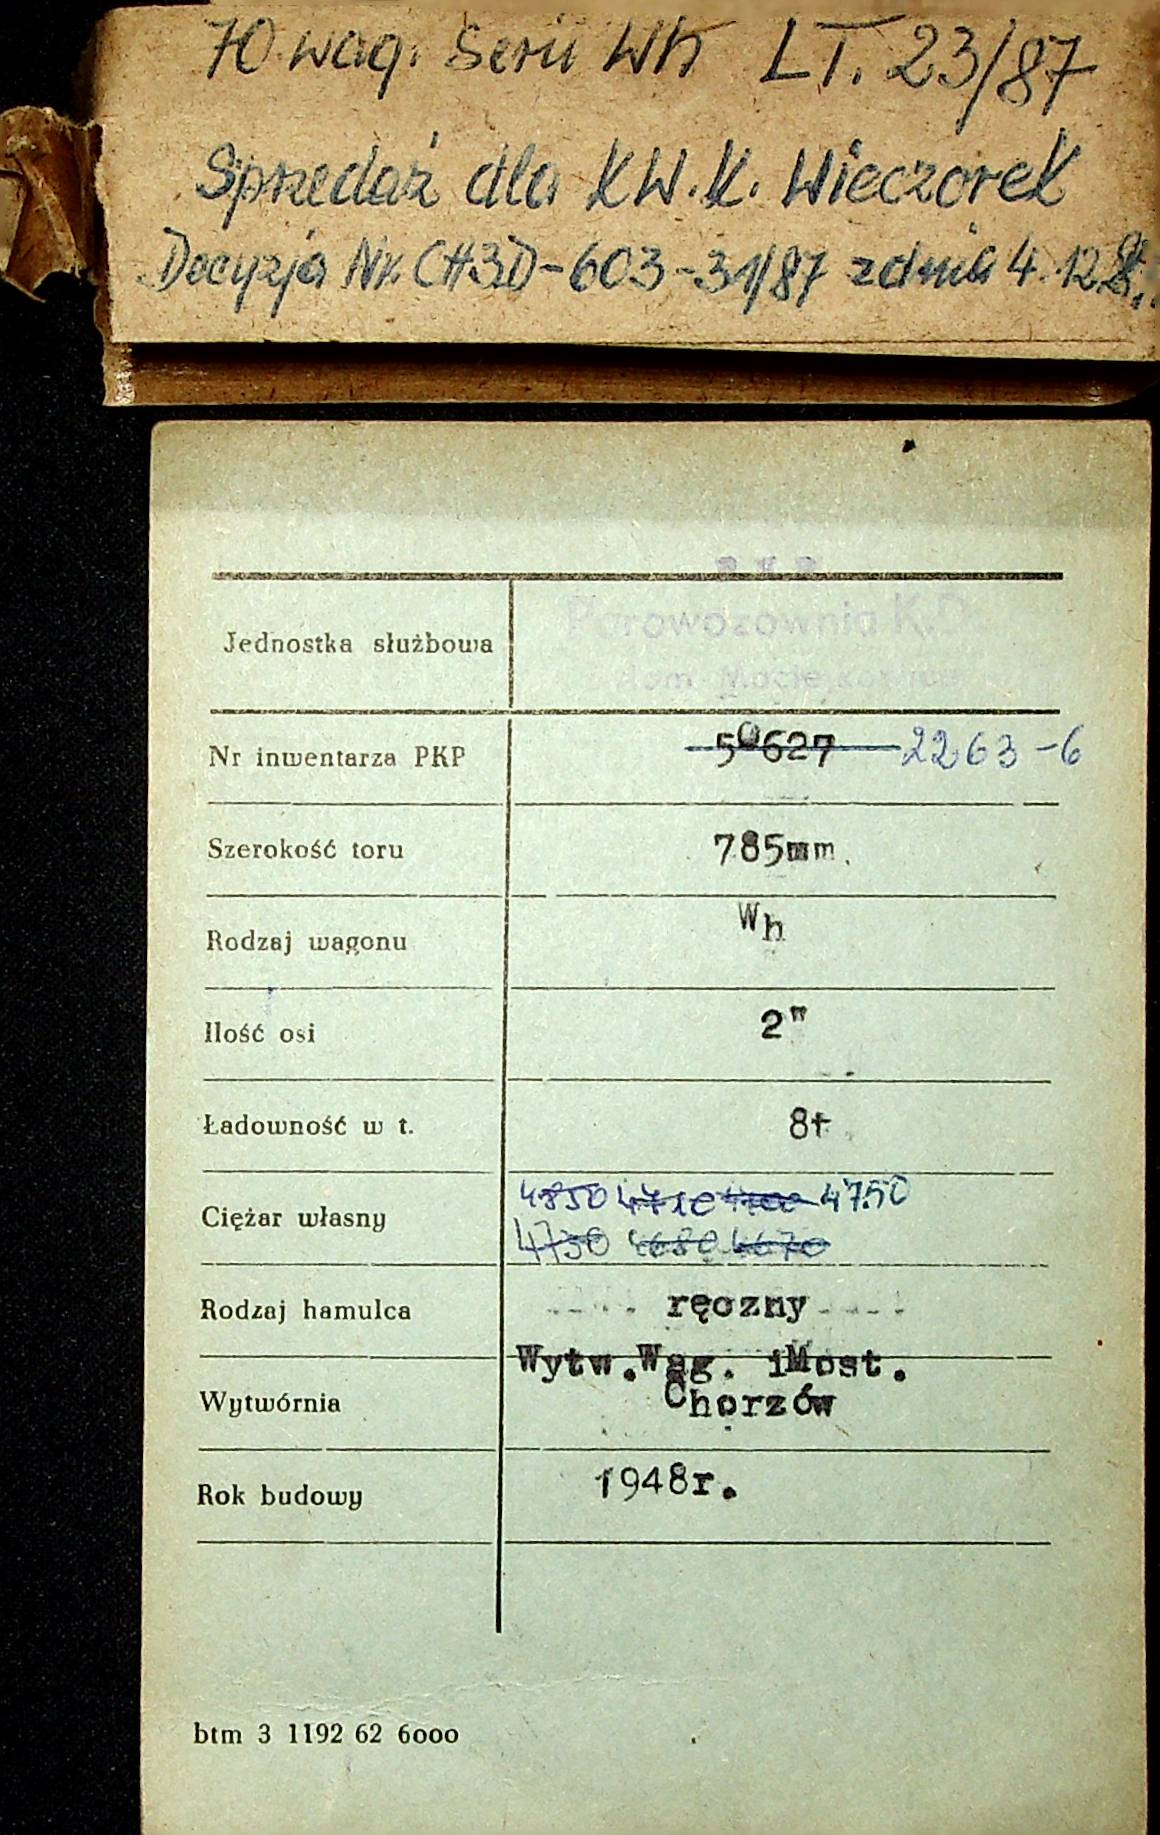 70 wag. Serii Wh LT. 23/87
Sprzedaż dla KW.K. Wieczorek
Decyzja Nr. CH3D-603-31/87 z dnia 4.12.8
P K P
Parowozownia K.D.
Jednostka służbowa
Nr inwentarza PKP 50627 2263-6
Szerokość toru 785mm.
Rodzaj wagonu Wh
Ilość osi 2"
Ładowność w t. 8t
4850 4710 4700 4750
Ciężar własny
4730 4680 4670
Rodzaj hamulca ręczny
Wytw.Wag. iMost.
Wytwórnia Chorzów
Rok budowy 1948r.
btm 3 1192 62 6ooo